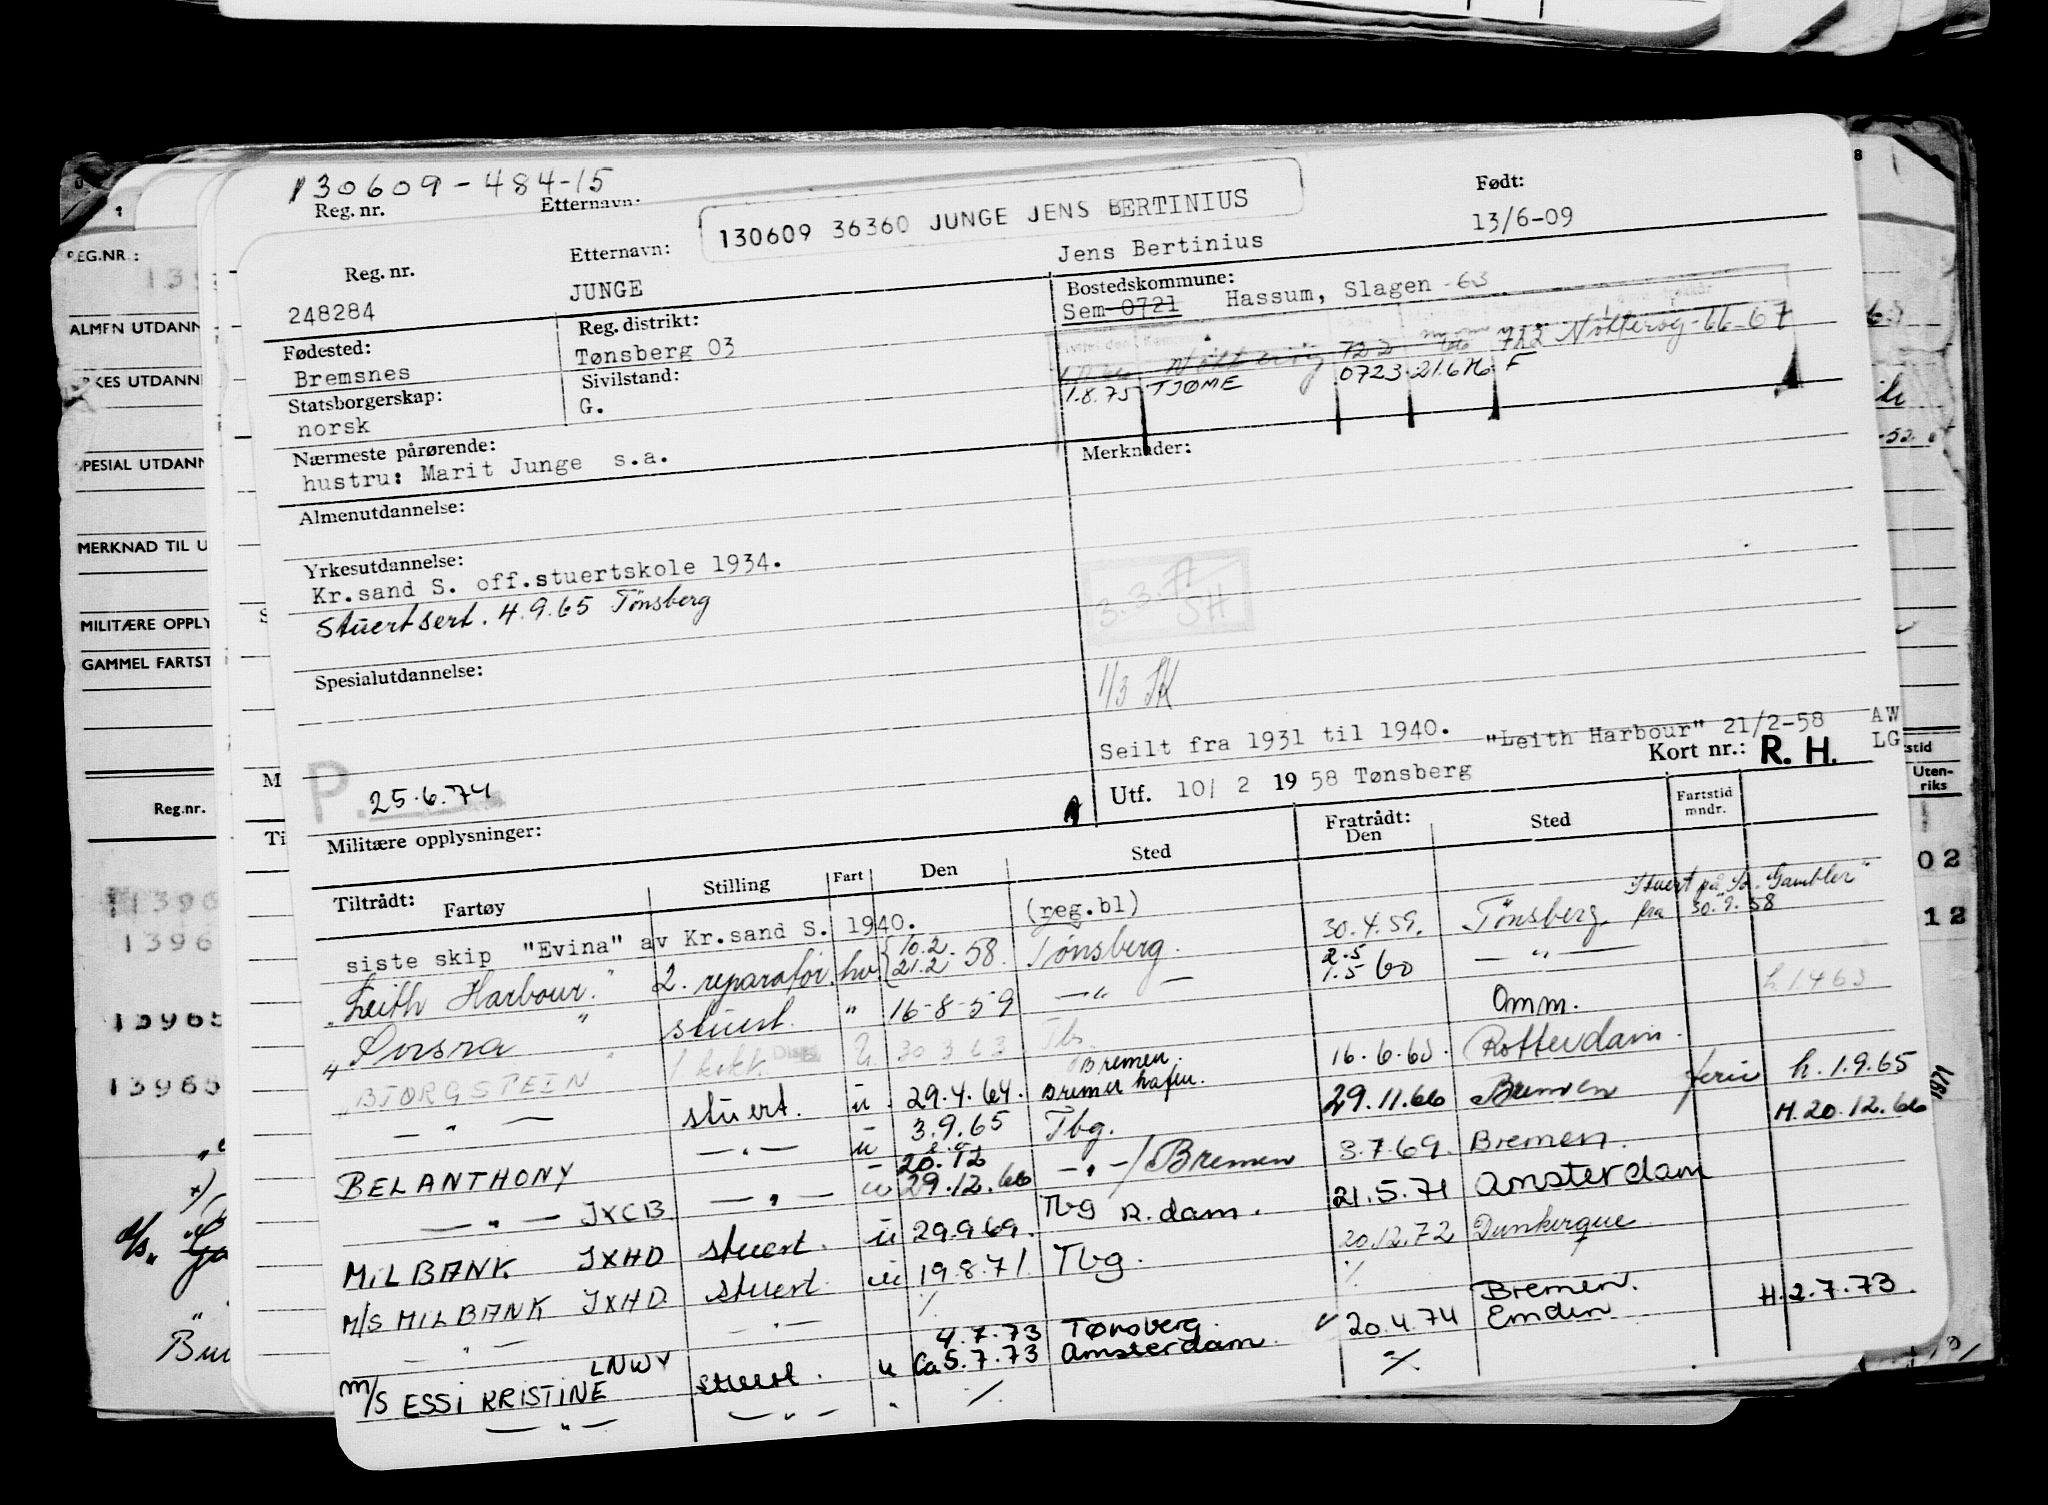 130609-484-15
Reg. nr.
Etternavn:
130609 36360 JUNGE JENS BERTINIUS
Født:
13/6-09
Reg. nr.
248284
Etternavn:
JUNGE
Jens Bertinius
Bostedskommune:
Sem 0721 Hassum, Slagen -63
722 Nøtterøy-66-67
1.8.75 TJØME 0723 21.6.76 F
Fødested:
Bremsnes
Reg. distrikt:
Tønsberg 03
Statsborgerskap:
norsk
Sivilstand:
G.
Nærmeste pårørende:
hustru: Marit Junge s.a.
Merknader:
Almenutdannelse:
Yrkesutdannelse:
Kr.sand S. off.stuertskole 1934.
Stuertsert. 4.9.65 Tönsberg
Spesialutdannelse:
1/3 SK
Seilt fra 1931 til 1940. "Leith Harbour" 21/2-58 AW
LG
Kort nr.: R. H.
P. 25.6.74
Utf. 10/ 2 19 58 Tønsberg
Militære opplysninger:
Tiltrådt:
Fartøy
Stilling
Fart
Den
Sted
Fratrådt:
Den
Sted
Fartstid
mndr.
siste skip "Evina" av Kr.sand S. 1940. (reg.bl)
Stuert på "So. Gambler"
fra 30.9.58
"Leith Harbour." 2. reparatør. hv. 10.2 21.2 58 Tønsberg. 30.4.59. Tönsberg.
" " stuert. " 16-8-59 — " — 2.5 1.5 60 — " —
"BJORGSTEIN" 1 kokk. U. 30 3 63 Tbg. Omm. h. 1.4 63
— " — stuert. u. 29.4.64. Bremen. Bremerhafen. 16.6.65. Rotterdam. ferie h. 1.9.65
BELANTHONY — " — u 3.9.65 Tbg. 29.11.66 Bremen H. 20.12.66
— " — JXCB — " — u 20.12 29.12.66 — " —/Bremen 3.7.69. Bremen.
MILBANK JXHD stuert. u 29.9.69. Tbg R.dam. 21.5.71 Amsterdam
M/S MILBANK JXHD stuert. u 19.8.71. Tbg. 20.12.72 Dunkerque
— " — — " — % % Bremen. H. 2.7.73.
M/S ESSI KRISTINE LNWY stuert. u 4.7.73 Ca 5.7.73 Tønsberg. Amsterdam. 20.4.74 Emden
— " — — " — " % %
REG.NR.:
ALMEN UTDANN
YRKES UTDANN
SPESIAL UTDANN
MERKNAD TIL U
MILITÆRE OPPLY
GAMMEL FARTST
Reg.nr.
13965
13965
Uten-
riks
02
12
1971